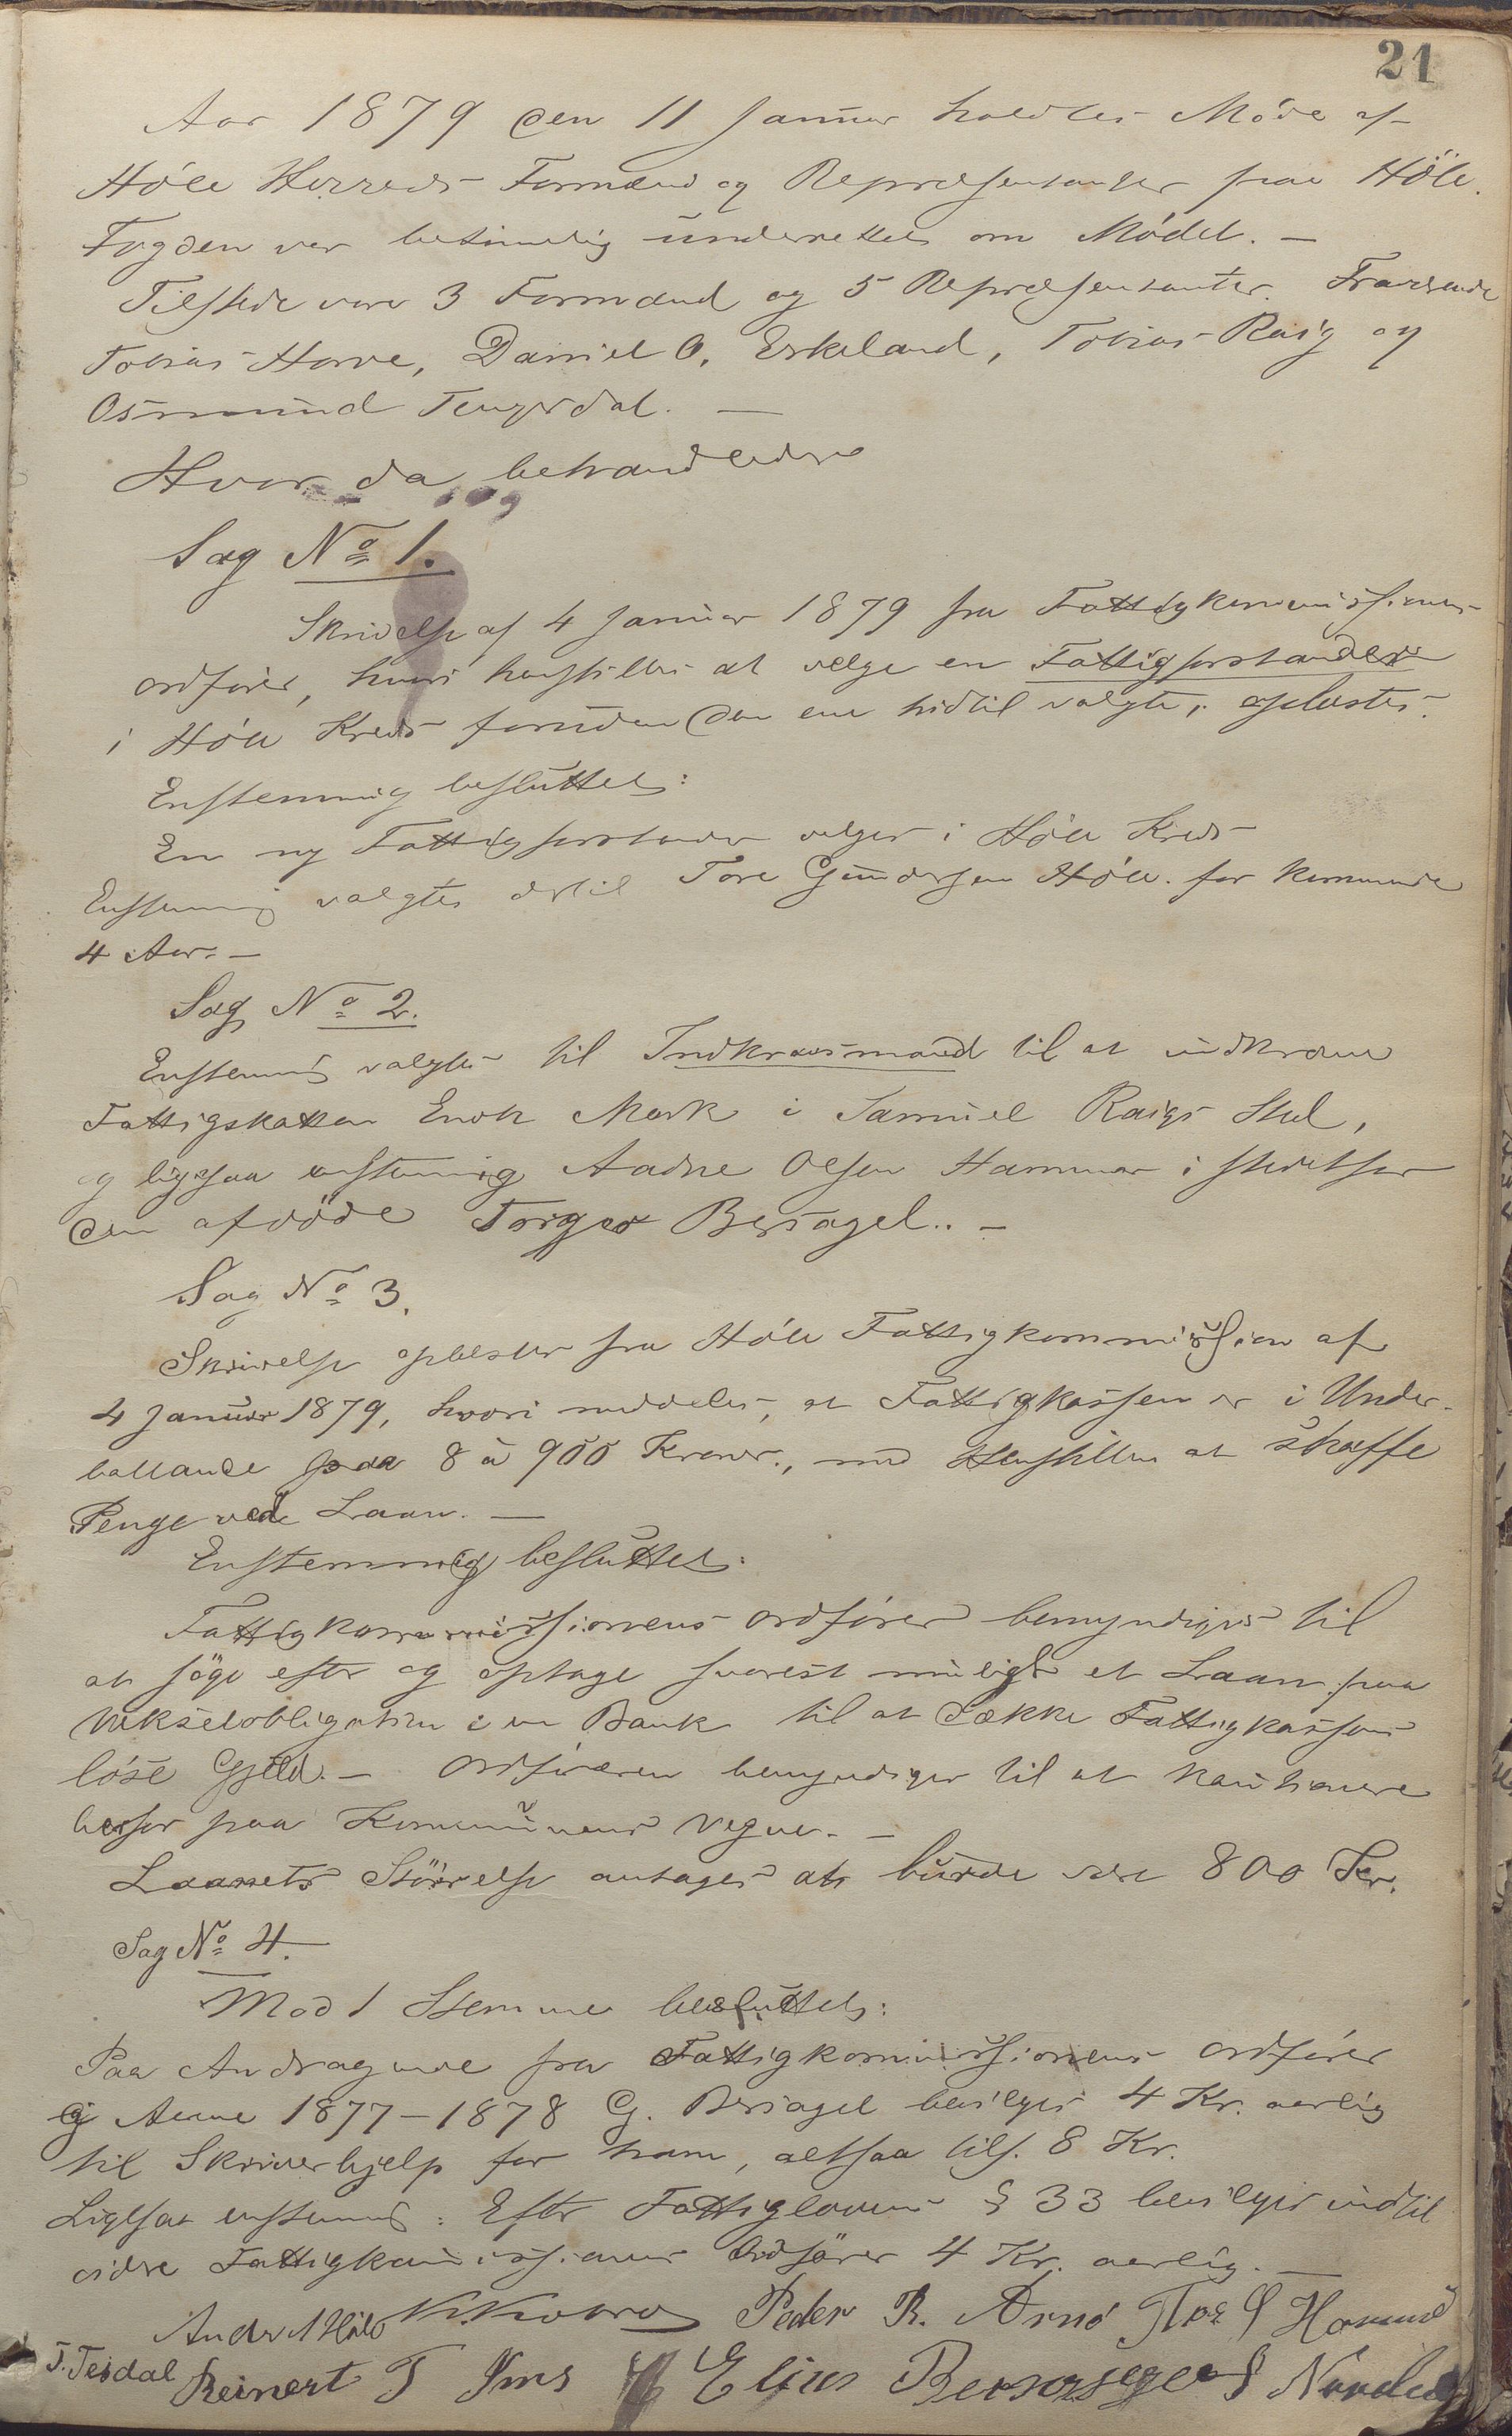 21
Aar 1879 den 11 Januar holdtes Møde af
Höle Herreds Formænd og Repræsentanter fra Höle.
Fogden var betimelig underrettet om Mödet. —
Tilstede vare 3 Formænd og 5 Repræsentanter. Fraværende
Tobias Horve, Daniel O. Eskeland, Tobias Raig og
Osmund Tengesdal. —
Hvor da behandledes
Sag No 1.
Skrivelse af 4 Januar 1879 fra Fattigkommissionens
ordförer, hvori henstilles at vælge en Fattigforstander
i Höle Kreds foruden den ene hidtil valgte, oplæstes.
Enstemmig besluttet:
En ny Fattigforstander vælges i Höle Kreds
Enstemmig valgtes dertil Tore Gundersen Höle for kommende
4 Aar. —
Sag No 2.
Enstemmig valgtes til Indkrævsmænd til at indkræve
Fattigskatten Enok Mork i Samuel Raigs Sted,
og ligesaa enstemmig Aadne Olsen Hammer i stedetfor
den afdöde Torger Bersagel. —
Sag No 3.
Skrivelse oplæstes fra Höle Fattigkommission af
4 Januar 1879, hvori meddeles, at Fattigkassen er i Under-
ballance paa 8 à 900 Kroner, med Henstillen at skaffe
Penge ved Laan. —
Enstemmig besluttet:
Fattigkommissionens ordförer bemyndiges til
at söge efter og optage snarest muligt et Laan paa
Vekselobligation i en Bank til at dække Fattigkassens
löse Gjeld. — Ordföreren bemyndiges til at kautionere
herfor paa Kommunens Vegne. —
Laanets Störrelse antages at burde være 800 Kr.
Sag No 4.
Mod 1 Stemme besluttet:
Paa Andragende fra Fattigkommissionens Ordförer
i Aarene 1877-1878 G. Bersagel bevilges 4 Kr. aarlig
til Skriverhjelp for ham, altsaa tils. 8 Kr.
Ligesaa enstemmig: Efter Fattiglovens § 33 bevilges indtil
videre Fattigkommissionens Ordförer 4 Kr. aarlig. —
Peder R. Arnö
T. Tesdal Reinert T Ims Elias Bersagel